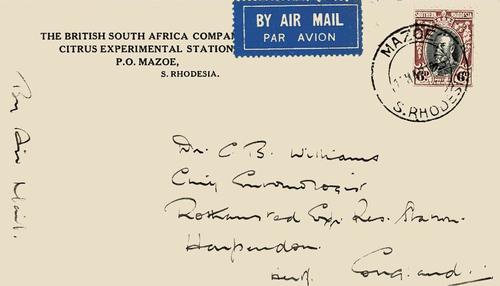 THE BRITISH SOUTH AFRICA COMPA
CITRUS EXPERIMENTAL STATION
P.O. MAZOE,
S. RHODESIA.
BY AIR MAIL
PAR AVION
SOUTHERN RHODESIA
6D 6D
MAZOE
S. RHODES
Per Air Mail.
Dr. C. B. Williams
Chief Entomologist
Rothamsted Exp. Res. Station
Harpenden.
Herts. England.